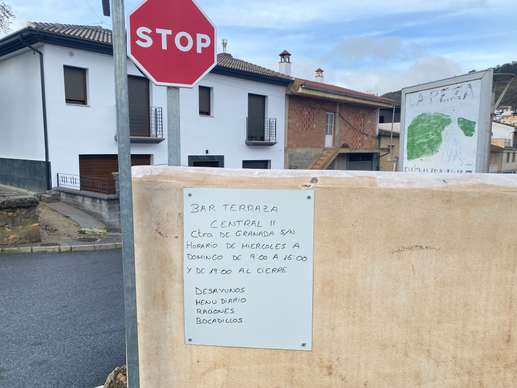 STOP
LA PEZA
BAR TERRAZA
CENTRAL II
Ctra DE GRANADA S/N
HORARIO DE MIERCOLES A
DOMINGO DE 9.00 A 16:00
Y DE 19:00 AL CIERRE
DESAYUNOS
MENU DIARIO
RAGONES
BOCADILLOS